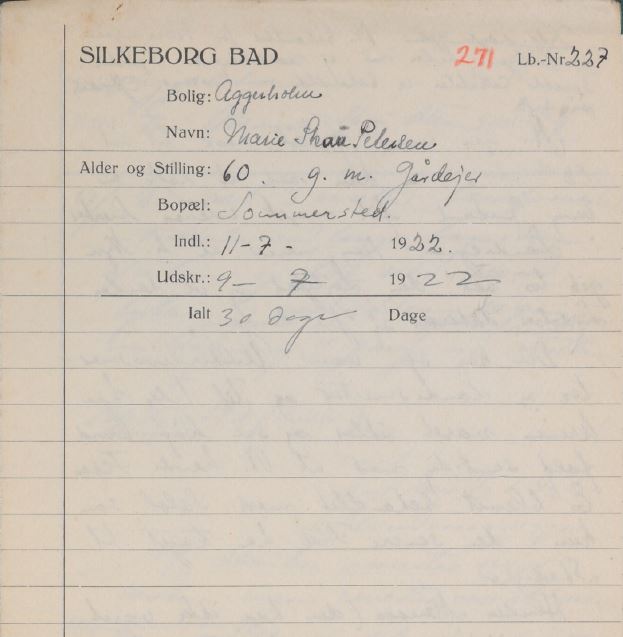 SILKEBORG BAD 271 Lb.-Nr. 227
Bolig: Aggersholm
Navn: Marie Skau Petersen
Alder og Stilling: 60. g. m. Gårdejer
Bopæl: Sommersted.
Indl.: 11-7- 1922.
Udskr.: 9- 7 1922
Ialt 30 dage Dage